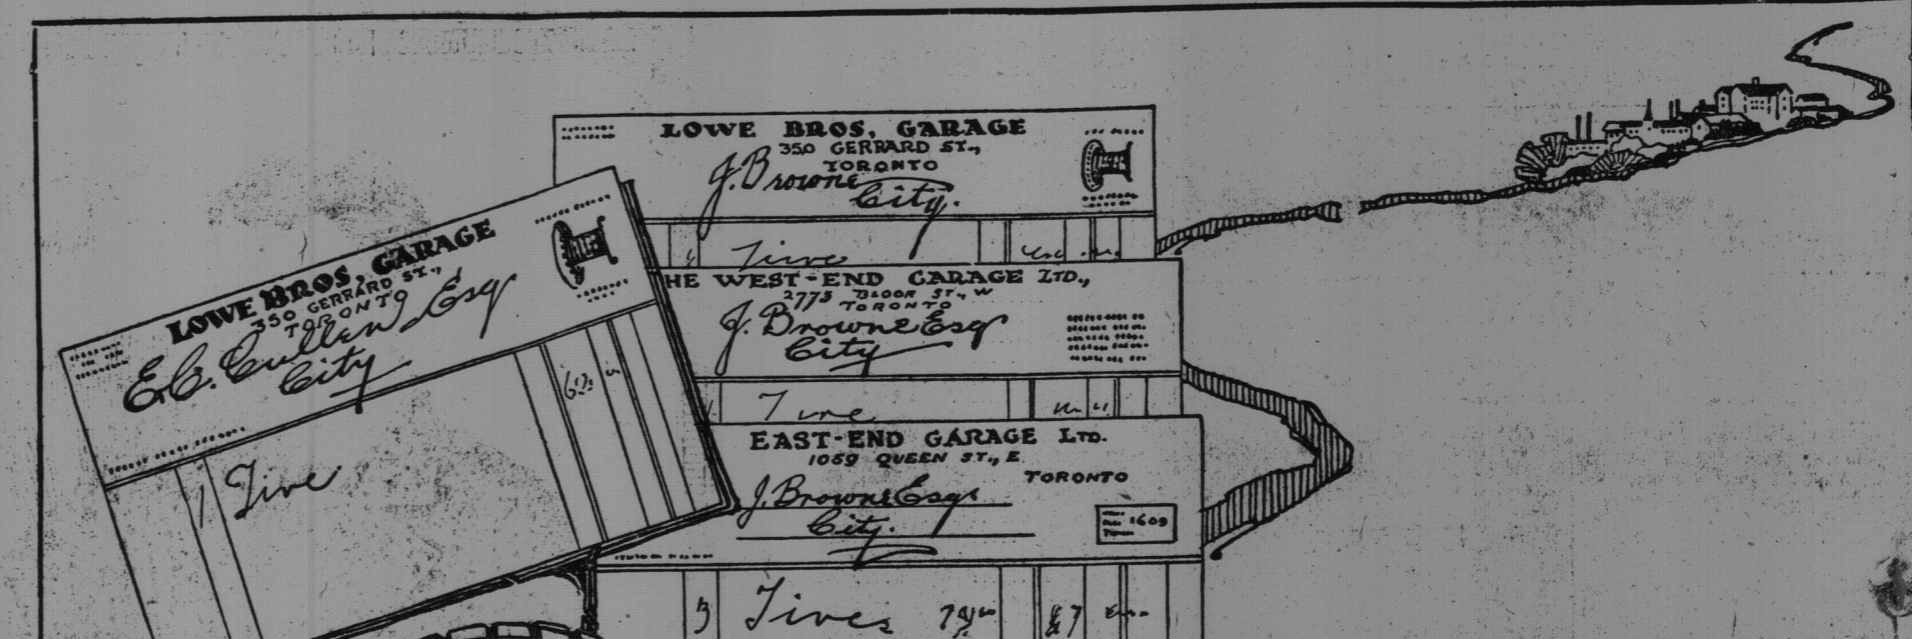 LOWE BROS, GARAGE
350 GERRARD ST.,
TORONTO
J. Browne
City.
Tire
LOWE BROS, GARAGE
350 GERRARD ST.,
TORONTO
E.C. Cullen, Esq
City
1 Tire
HE WEST-END GARAGE LTD.,
2773 BLOOR ST., W
TORONTO
J. Browne Esq
City
1 Tire
EAST-END GARAGE LTD.
1069 QUEEN ST., E
TORONTO
J. Browne Esq
City.
1609
3 Tires